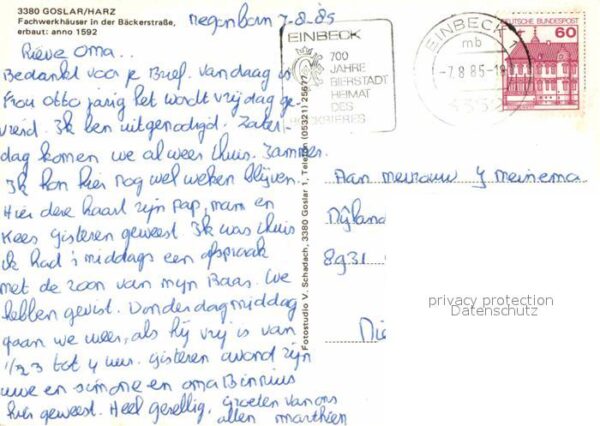 3380 GOSLAR/HARZ
Fachwerkhäuser in der Bäckerstraße,
erbaut: anno 1592
Negenborn 7-8-85
Lieve Oma..
Bedankt voor je Brief. Vandaag is
Frou Otto jarig het wordt vrijdag ge
vierd. Ik ben uitgenodigd. Zater-
dag komen we al weer thuis. Jammer.
Ik kon hier nog wel weken blijven.
Hier deze kaart zijn pap, mam en
Kees gisteren geweest. Ik was thuis
ik had 's middags een afspraak
met de zoon van mijn Baas. We
hebben gevist. Donderdagmiddag
gaan we weer, als hij vrij is van
1/2 3 tot 4 uur. Gisteren avond zijn
uwe en simone en oma Binnius
hier geweest. Heel gezellig. Groeten van ons
allen marthien
Fotostudio V. Schadach, 3380 Goslar 1, Telefon (05321) 25677
EINBECK
700
JAHRE
BIERSTADT
HEIMAT
DES
BOCKBIERES
EINBECK 1
mb
-7.8.85-18
3352
DEUTSCHE BUNDESPOST
60
Aan mevrouw J Meinema
Nijland
8931
Nie
privacy protection
Datenschutz